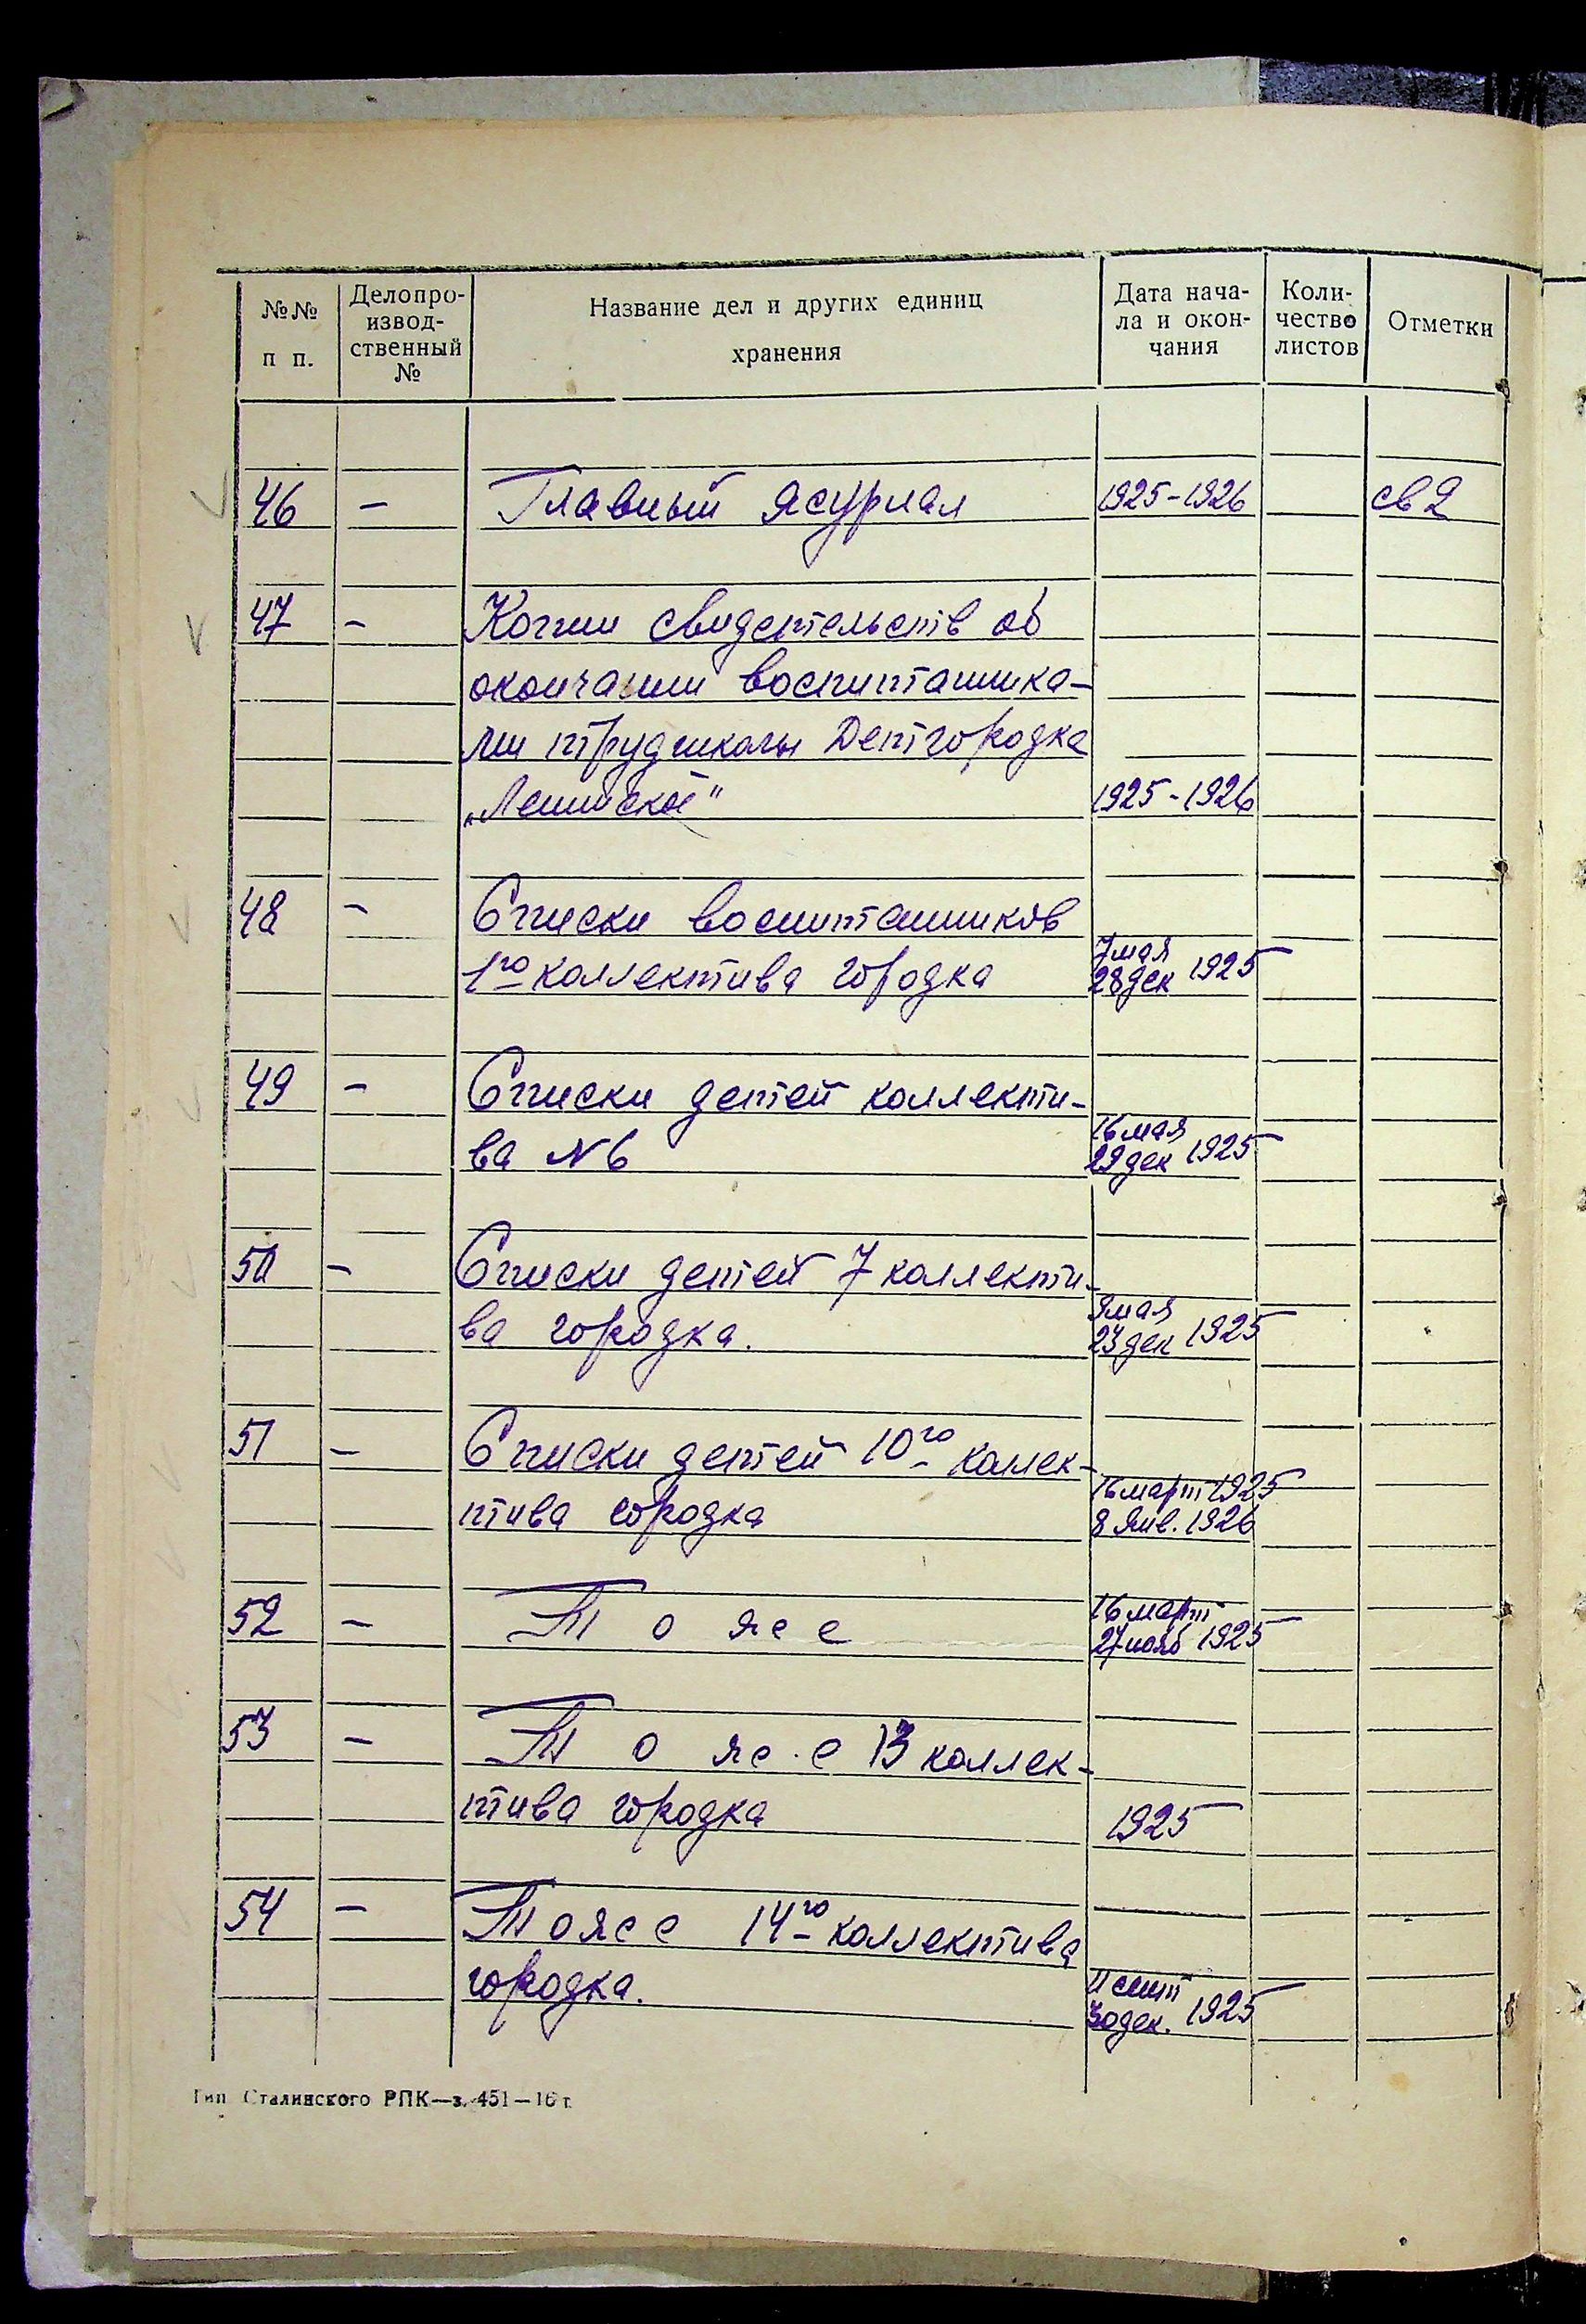 №№ п п.
Делопро-
извод-
ственный
№
Название дел и других единиц
хранения
Дата нача-
ла и окон-
чания
Коли-
чество
листов
Отметки
46 - Главный журнал 1925-1926 св 2
47 - Копии свидетельств об
окончании воспитанника-
ми трудшколы Детгородка
„Ленинской" 1925-1926
48 - Списки воспитанников
7 мая
1го коллектива городка 28 дек 1925
49 - Списки детей коллекти-
16 мая
ва N 6 29 дек 1925
50 - Списки детей 7 коллекти-
9 мая
ва городка. 23 дек 1925
51 - Списки детей 10го коллек-
16 март 1925
тива городка 8 янв. 1926
52 - То же 16 март
27 нояб 1925
53 - То же 13 коллек-
тива городка 1925
54 - То же 14го коллектива
11 сент
городка. 30 дек. 1925
Тип Сталинского РПК—з. 451—16 г.